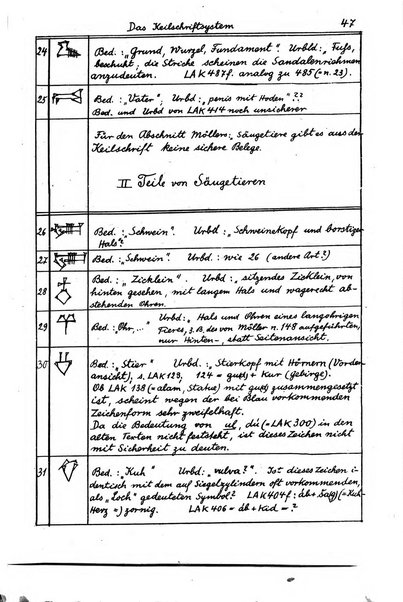 Das Keilschriftsystem
47
24
Bed.: „Grund, Wurzel, Fundament". Urbld: „Fuß,
beschuht; die Striche scheinen die Sandalenriemen
anzudeuten. LAK 487f. analog zu 485 (= n. 23).
25
Bed.: „Vater"; Urbd: „penis mit Hoden"??
Bed. und Urbd von LAK 414 noch unsicherer
Für den Abschnitt Möllers: Säugetiere gibt es aus der
Keilschrift keine sichere Belege.
II Teile von Säugetieren
26
Bed.: „Schwein". Urbd: „Schweinekopf und borstiger
Hals?
27
Bed.: „Schwein". Urbd.: wie 26 (andere Art?)
28
Bed.: „Zicklein". Urbd: „sitzendes Zicklein, von
hinten gesehen, mit langem Hals und wagerecht ab-
stehenden Ohren.
29
Urbd.: „Hals und Ohren eines langohrigen
Bed.: „Ohr,..." Tieres, z.B. des von Möller n. 148 aufgeführten,
nur Hinten-, statt Seitenansicht.
30
Bed.: „Stier" Urbd: „Stierkopf mit Hörnern (Vorder-
ansicht), s. LAK 123, 124 = gud + Kur (gebirge).
Ob LAK 138 (= alam, Statue) mit gud zusammengesetzt
ist, scheint wegen der bei Blau vorkommenden
Zeichenform sehr zweifelhaft.
Da die Bedeutung von ul, dú (= LAK 300) in den
alten Texten nicht feststeht, ist dieses Zeichen nicht
mit Sicherheit zu deuten.
31
Bed.: „Kuh" Urbd: „vulva?". Ist dieses Zeichen i-
dentisch mit dem auf Siegelzylindern oft vorkommenden,
als „Loch" gedeuteten Symbol? LAK 404f.: áb + šag (= Kuh-
Herz =) zornig. LAK 406 = áb + Kid = ?